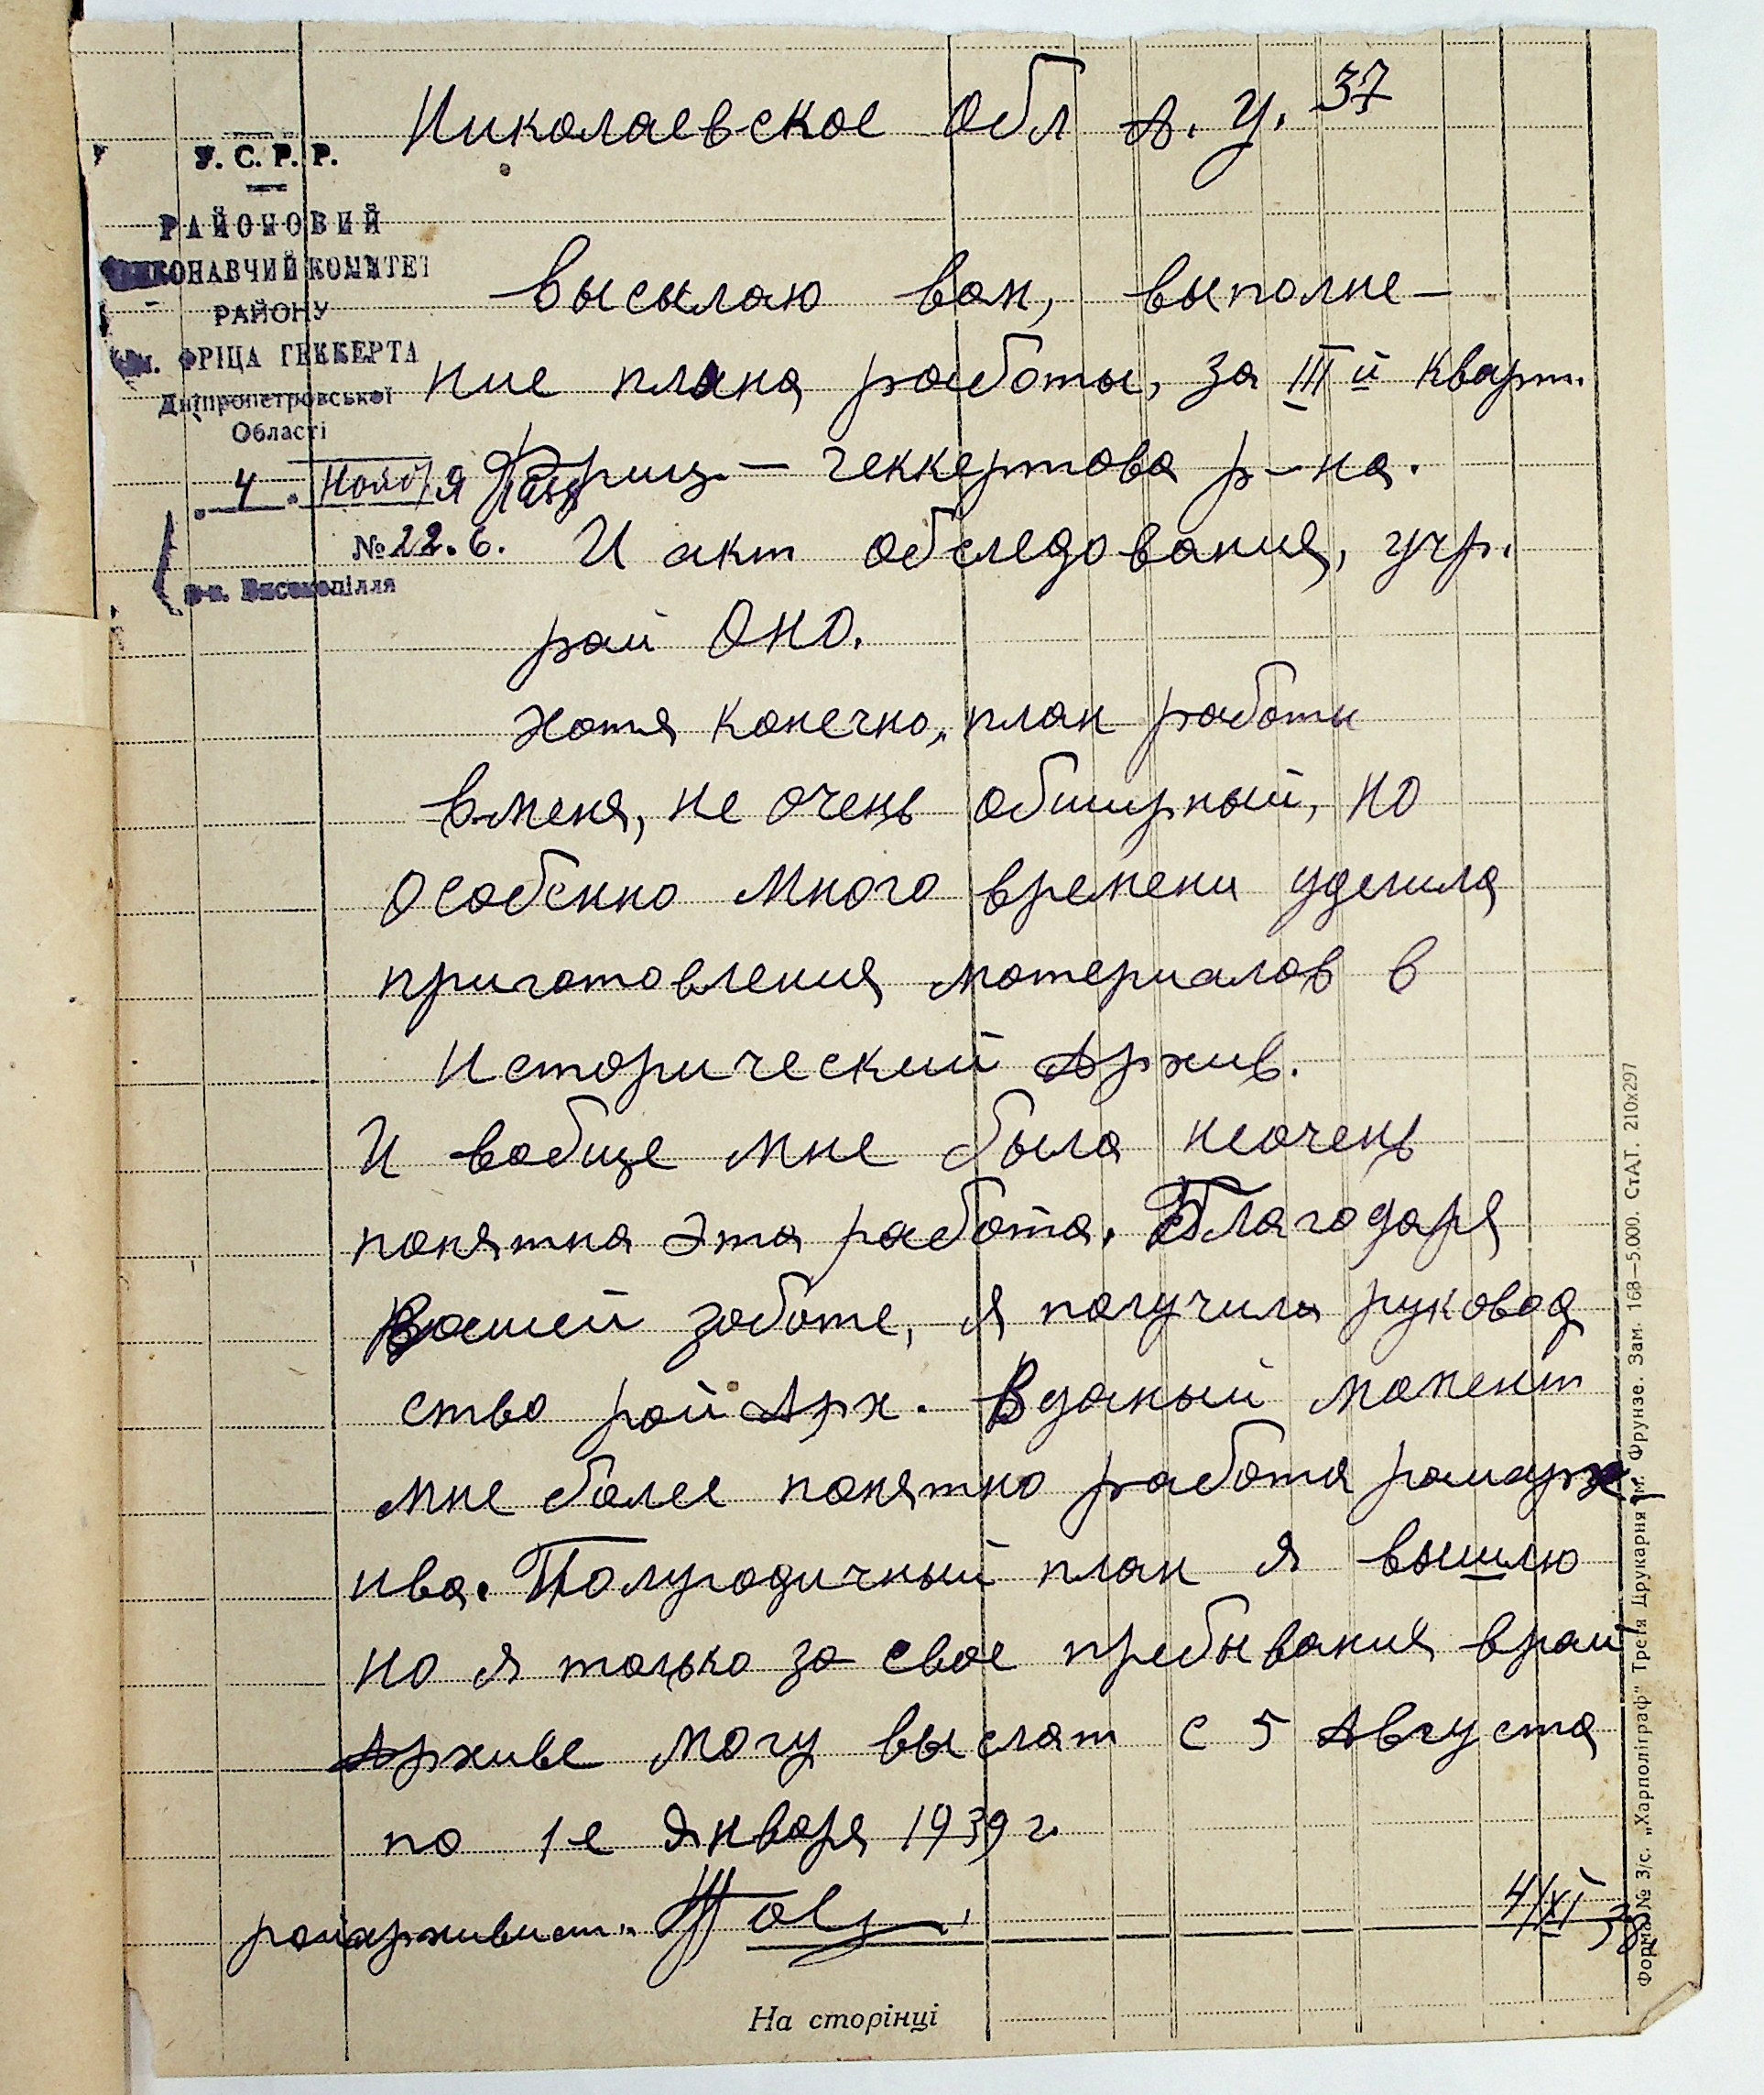 37
Николаевское Обл А. У.
У. С. Р. Р.
РАЙОНОВИЙ
КОНАВЧИЙ КОМИТЕТ
РАЙОНУ
ФРІЦА ГЕККЕРТА
Дніпропетровської
Області
4 Ноября
№ 22.6.
Високопілля
Высылаю вам, выполне-
ние плана работы, за III й кварт.
Фриц - геккертова р-на.
И акт обследования, учр.
рай ОНО.
Хотя конечно, план работы
вменя, не очень обширный, но
особенно много времени уделила
приготовления материалов в
Исторический Архив.
И вобще мне была неочень
понятна эта работа. Благодаря
Вашей заботе, я получила руковод
ство рай Арх. Вданый момент
мне более понятно работа райарх
ива. Полугодичный план я вышлю
но я только за свое пребывания врай
Архиве могу выслат с 5 Августа
по 1-е Января 1939 г.
райархивист.
4/XI 38
На сторінці
Форма № 3/с. „Харполіграф" Третя Друкарня ім. Фрунзе. Зам. 168—5.000. СтАТ. 210x297